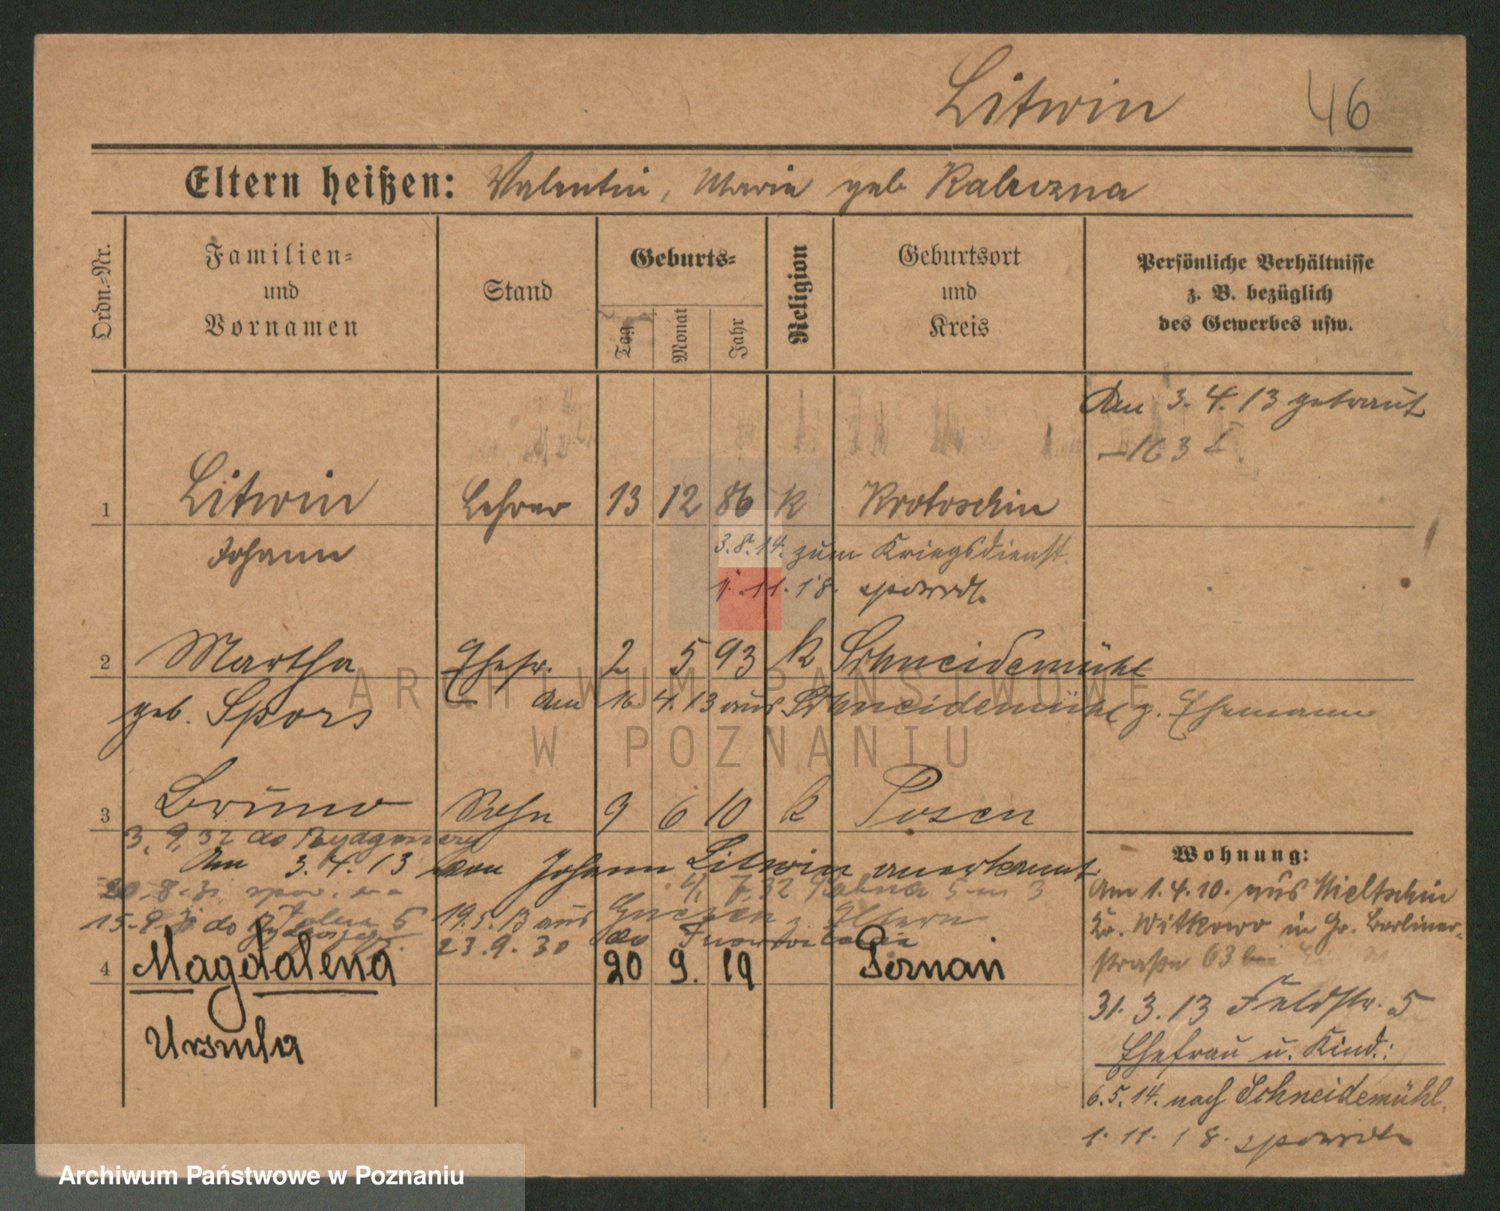 Litwin 46
Eltern heißen: Valentin, Marie geb
Ordn.-Nr.
Familien= und Vornamen
Stand
Geburts=
Tag
Monat
Jahr
Religion
Geburtsort und Kreis
Persönliche Verhältnisse z. B. bezüglich des Gewerbes usw.
Am 3. 4. 13 getraut
1 Litwin Lehrer 13 12 86 k Krotoschin
Johann 3.8.14. zum Kriegsdienst.
1. 11. 18.
2 Martha Ehefr. 2 5 93 k Schneidemühl
geb. Spors Am 16 4. 13 aus Schneidemühl z. Ehemann
ARCHIWUM PAŃSTWOWE
W POZNANIU
3 Bruno Sohn 9 6 10 k Posen
3. 9. 32 do Bydgoszczy
Am 3. 4. 13 von Johann Litwin anerkannt
19.5.13 aus Gnesen z. Eltern
15.9. do
23. 9. 30 do
4 Magdalena 20 9. 19 Poznań
Urszula
Wohnung:
Am 1. 4. 10. aus
Kr. Witkowo in Gr. Berliner-
straße 63
31. 3. 13 Feldstr. 5
Ehefrau u. Kind.:
6. 5. 14. nach Schneidemühl.
1. 11. 18.
Archiwum Państwowe w Poznaniu